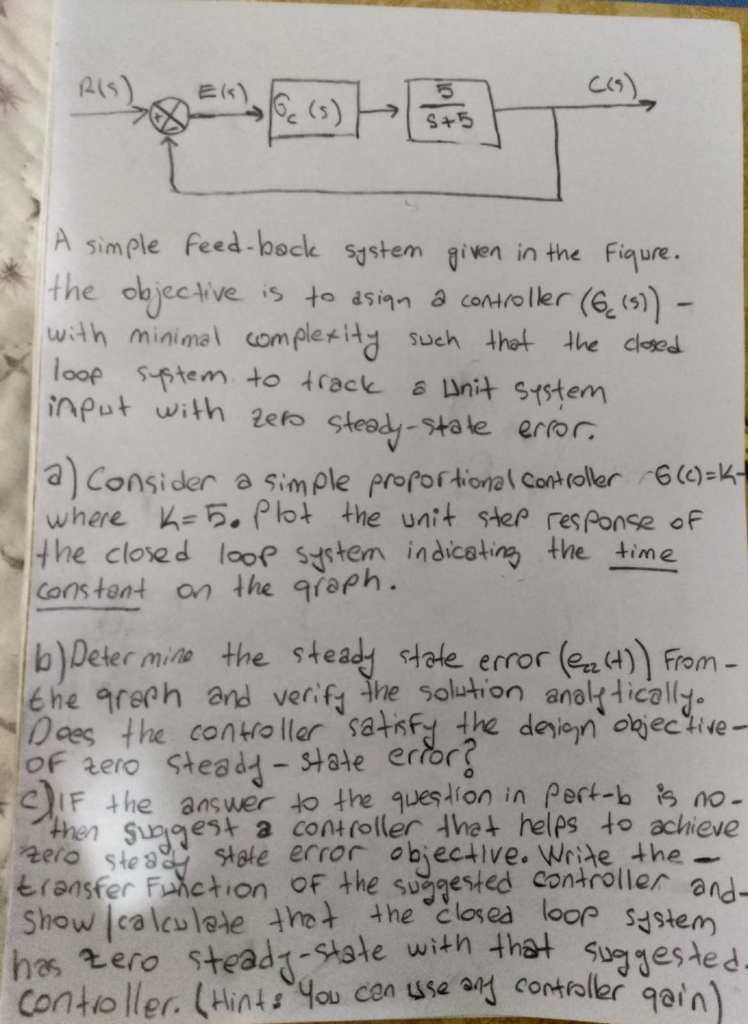 R(s) E(s) Gc (s) 5 C(s)
s+5
+
-
A simple feed-back system given in the Figure.
the objective is to asign a controller (Gc(s)) -
with minimal complexity such that the closed
loop system to track a Unit system
input with zero steady-state error.
a) Consider a simple proportional controller -G(c)=K-
where K=5. Plot the unit step response of
the closed loop system indicating the time
constant on the graph.
b) Determine the steady state error (ezz(t)) From -
the graph and verify the solution analytically.
Does the controller satisfy the design objective-
OF zero steady-state error?
c) IF the answer to the question in Part-b is no-
then suggest a controller that helps to achieve
zero steady state error objective. Write the -
transfer Function of the suggested controller and-
show/calculate that the closed loop system
has zero steady-state with that suggested.
controller. (Hint: You can usse any controller gain)